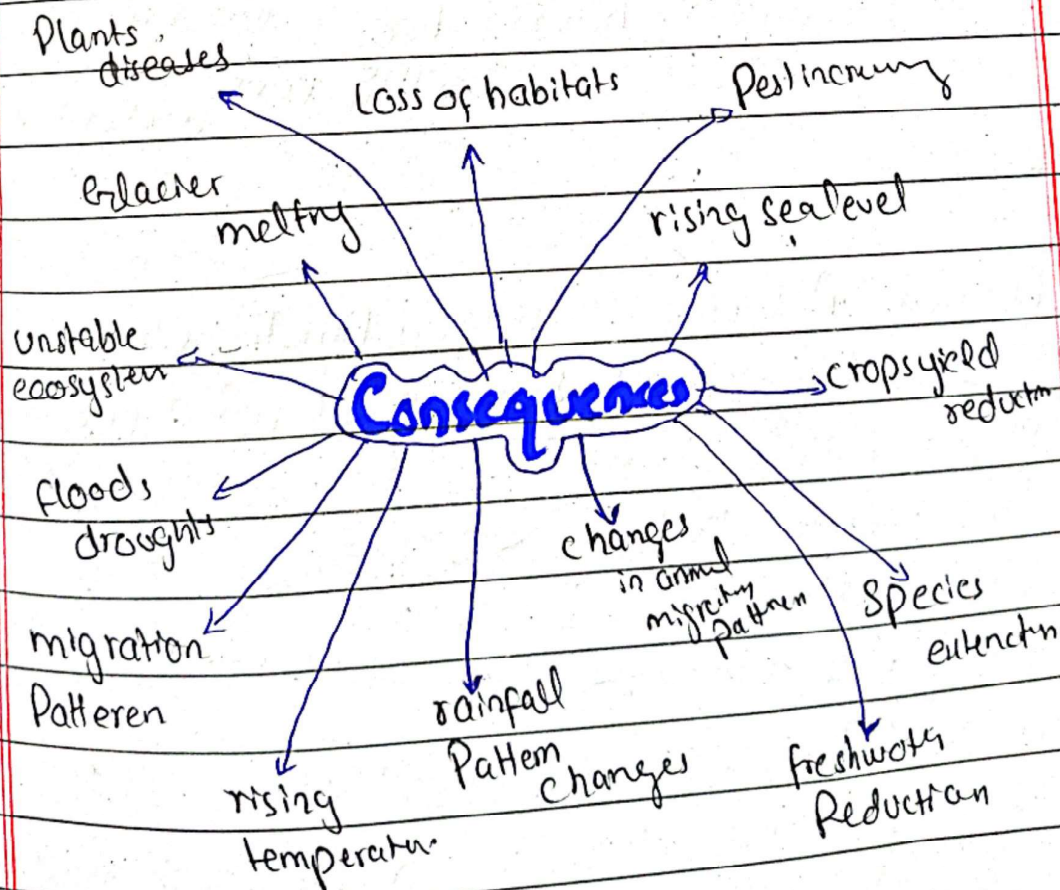 Plants
diseases
Loss of habitats
Pest
Glacier
melting
rising sealevel
unstable
ecosystem
Consequences
cropsyield
reduction
floods
droughts
changes
in animal
migration
pattern
Species
migration
Patteren
rainfall
Pattern
changes
freshwater
Reduction
rising
temperature